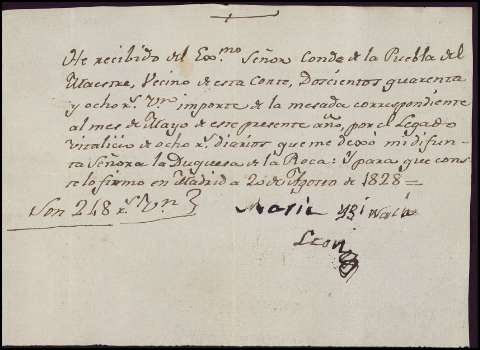 He recibido del Exc.mo Señor Conde de la Puebla del
Maestre, Vecino de esta Corte, Doscientos quarenta
y ocho r.s v.n importe de la mesada correspondiente
al mes de Mayo de este presente año, por el Legado
vitalicio de ocho r.s diarios que me dexó mi difun-
ta Señora la Duquesa de la Roca: Y para que cons-
te lo firmo en Madrid a 2 de Agosto de 1828=
Son 248 r.s V.n
Maria
Leon